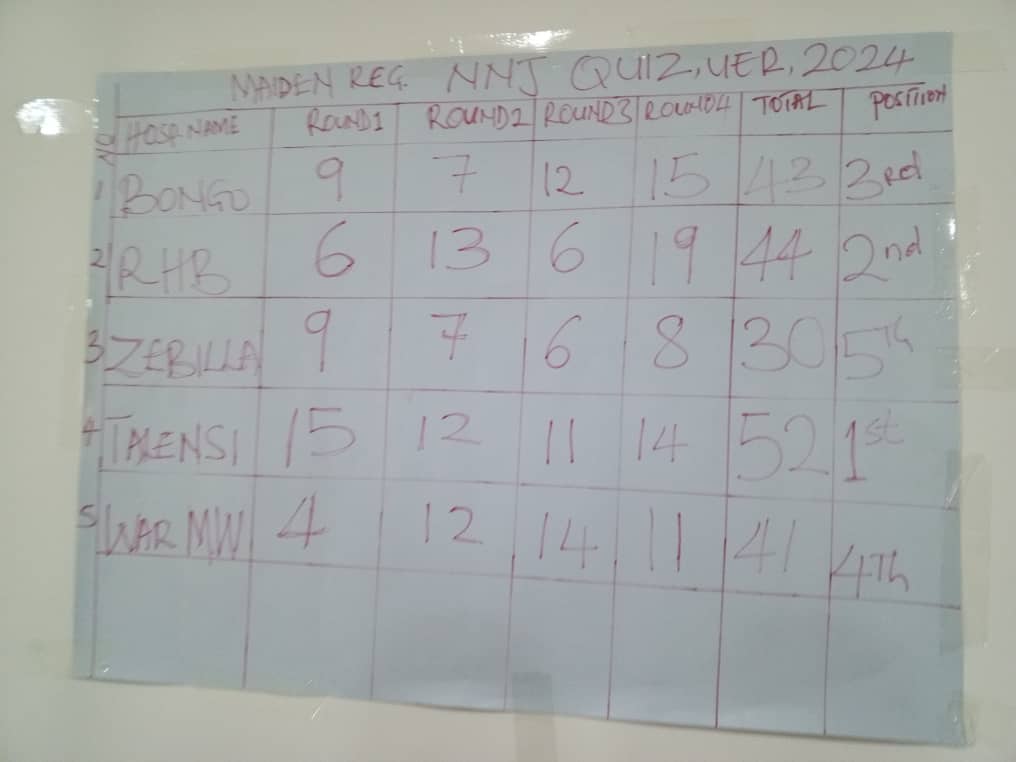 MAIDEN REG. NNJ QUIZ, UER, 2024
NO HOSP. NAME ROUND1 ROUND2 ROUND3 ROUND4 TOTAL POSITION
1 BONGO 9 7 12 15 43 3rd
2 RHB 6 13 6 19 44 2nd
3 ZEBILLA 9 7 6 8 30 5th
4 TALENSI 15 12 11 14 52 1st
5 WAR MW 4 12 14 11 41 4Th